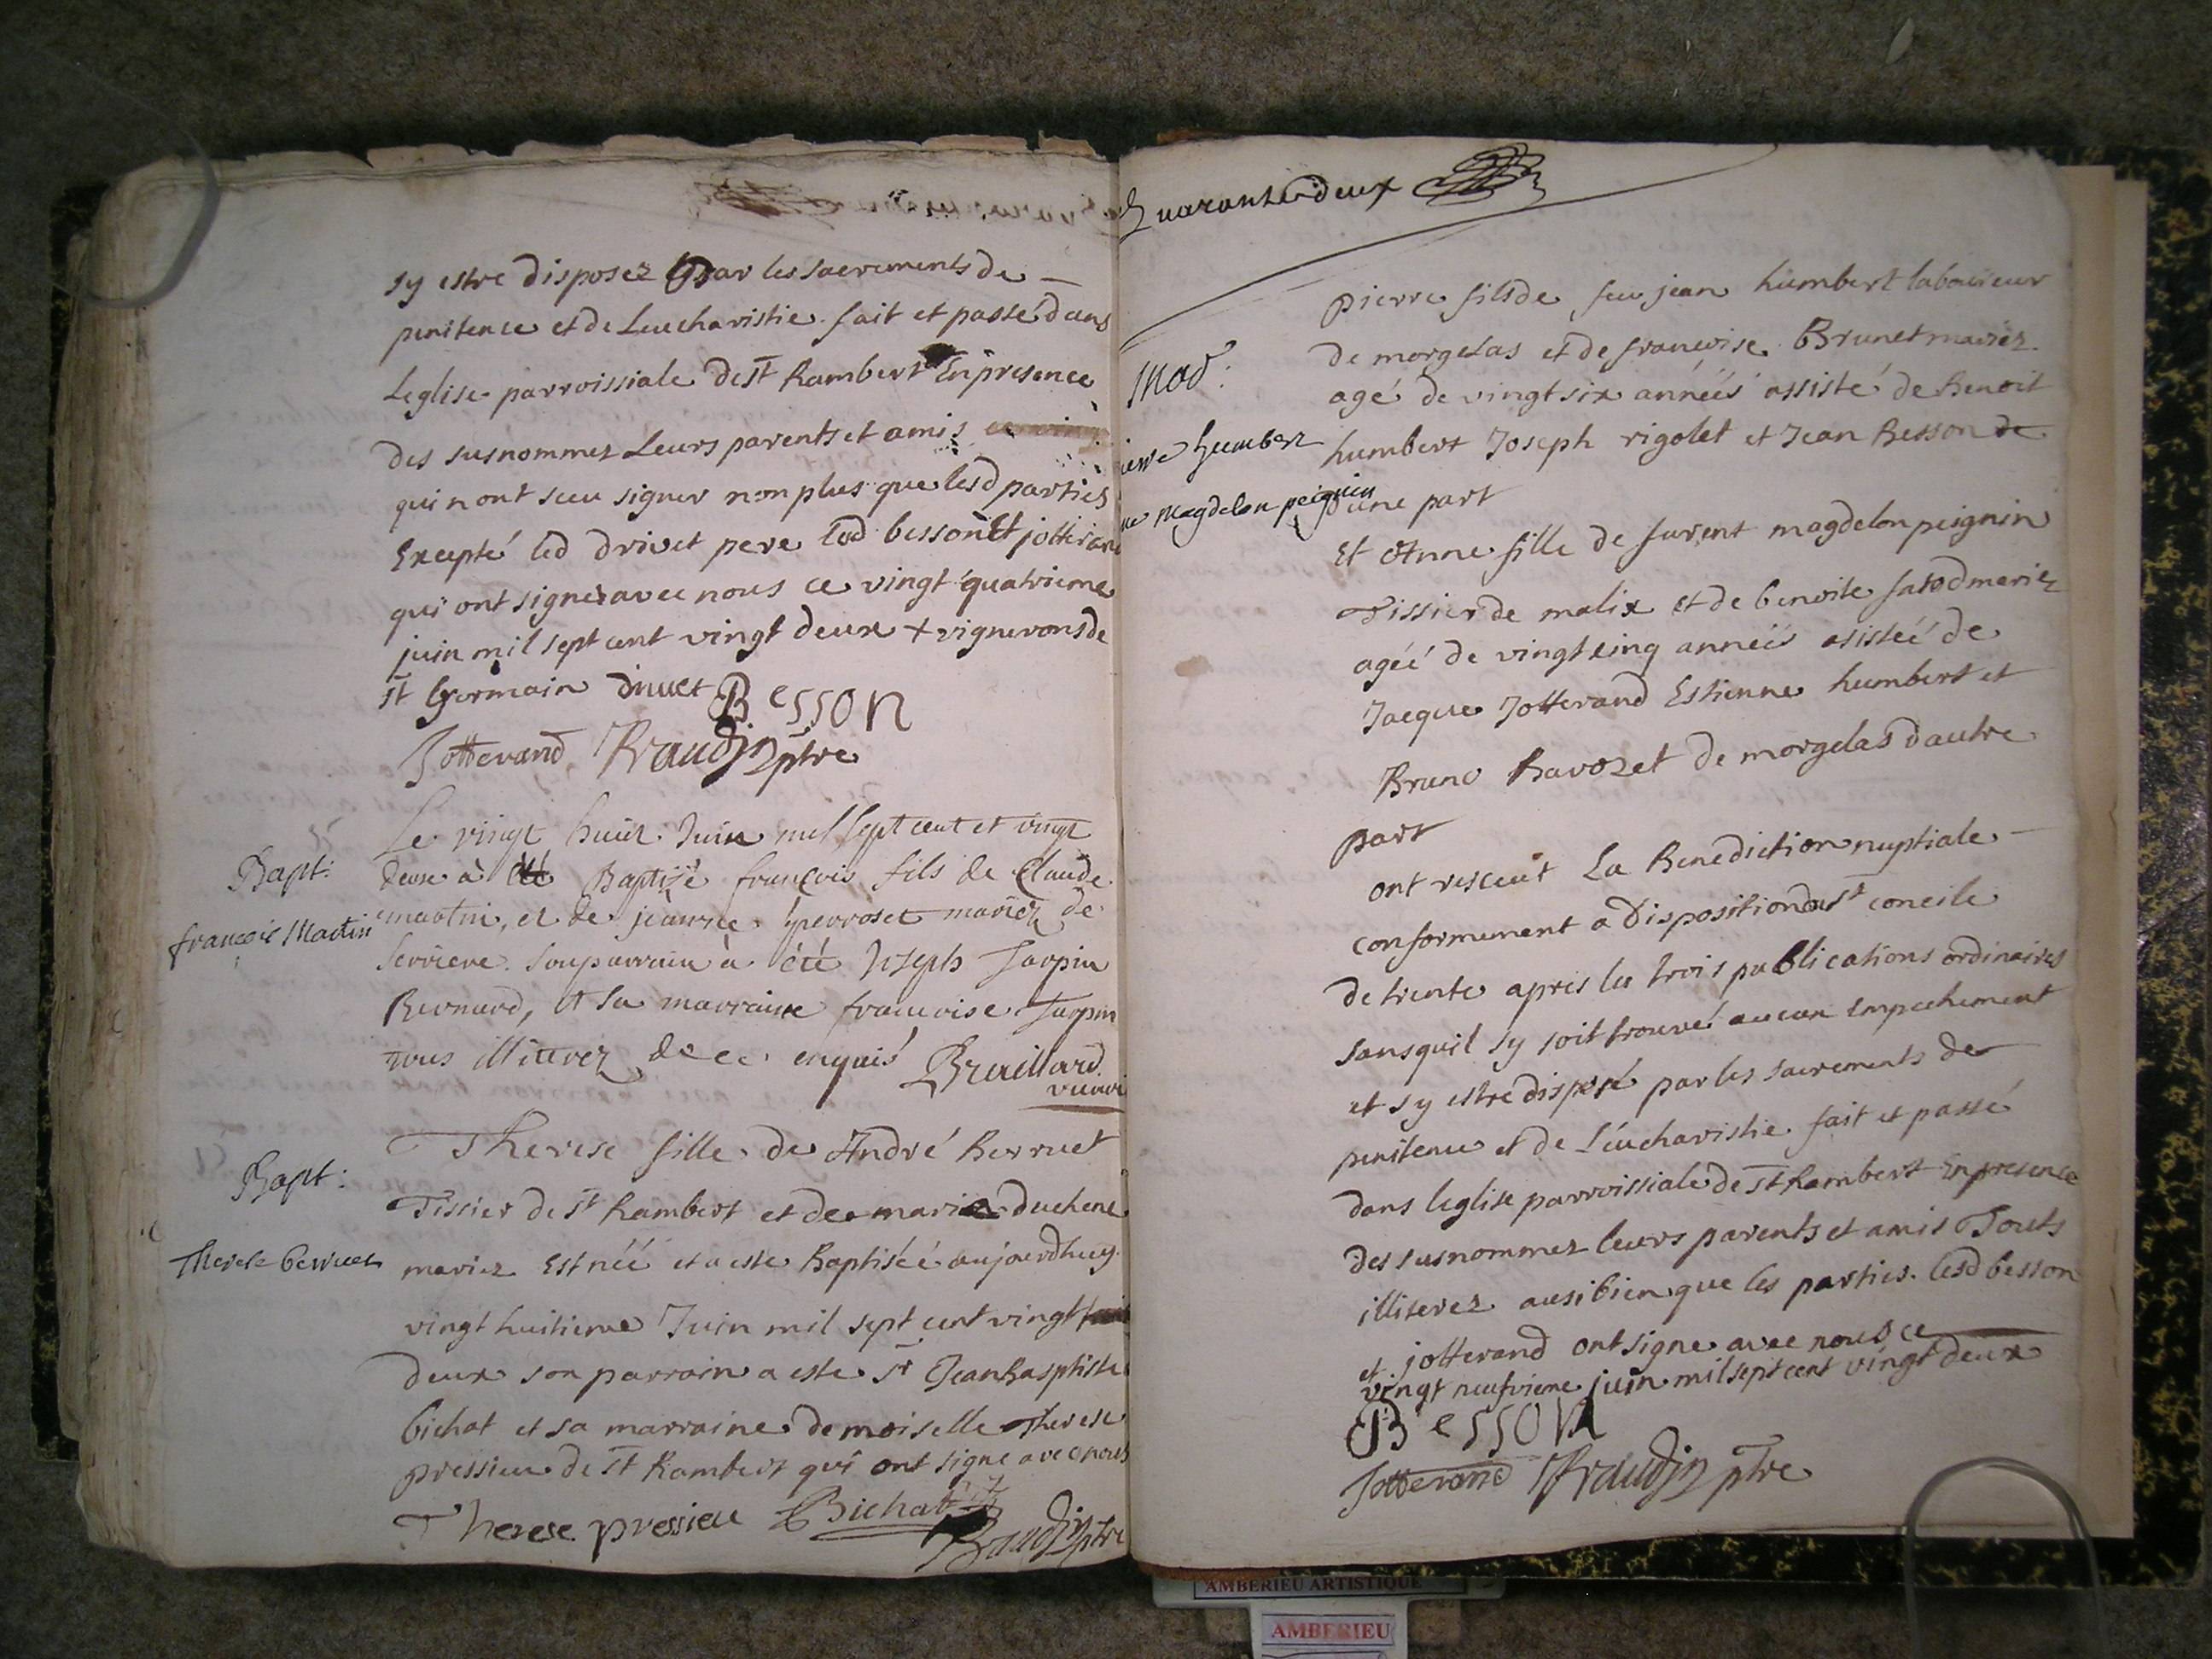 sy estre disposez par les sacrements de
penitence et de Leucharistie fait et passé dans
Leglise parroissiale de St Rambert En presence
des susnommez Leurs parents et amis
qui n ont sceu signer non plus que lesd parties
Excepté led drivet pere led besson Et jotterand
qui ont signés avec nous ce vingt quatrieme
juin mil sept cent vingt deux + vignerons de
St Germain drivet Besson
Jotterand Braudin ptre
Le vingt huit Juin mil sept cent et vingt
deux à été Baptisé françois fils de Claude
martin, et de jeanne perroset mariez de
Serriere. son parrain à été Joseph Jarpin
Bernard, et sa marraine francoise Jarpin
tous illiterez de ce enquis Braillard
vicaire
Bapt:
françois Martin
Therese fille de André berruet
Tissier de St Rambert et de marie duchene
mariez Est néé et a este Baptiséé aujourdhuy
vingt huitieme Juin mil sept cent vingt
deux son parrain a este Sr Jean Basptiste
bichat et sa marraine demoiselle Therese
pressieu de St Rambert qui ont signe avec nous
Therese pressieu Bichat
Braudin ptre
Bapt:
Therese berruet
Quarante deux
Mar:
ierre humbert
ne Magdelon peignin
pierre fils de feu jean humbert laboureur
de morgelas et de francoise Brunet mariez
agé de vingt six annéés assisté de Benoit
humbert Joseph rigolet et Jean Besson de
dune part
Et Anne fille de Laurent magdelon peignin
Tissier de malix et de benoite mariez
agéé de vingt cinq annéés asistéé de
Jacque Jotterand Estienne humbert et
Bruno ravozet de morgelas dautre
part
ont resceut La Benediction nuptiale
conformement a disposition du St concile
de trente apres les trois publications ordinaires
sans quil sy soit trouvé aucun Empechement
et sy estre disposé par les sacrements de
penitence et de Léucharistie fait et passé
dans leglise parroissiale de St Rambert En presence
des susnommez leurs parents et amis Touts
illiterez ausi bien que les parties. lesd besson
et jotterand ont signe avec nous ce
vingt neufvieme juin mil sept cent vingt deux
Besson
Jotterand Braudin ptre
AMBERIEU ARTISTIQUE
AMBERIEU